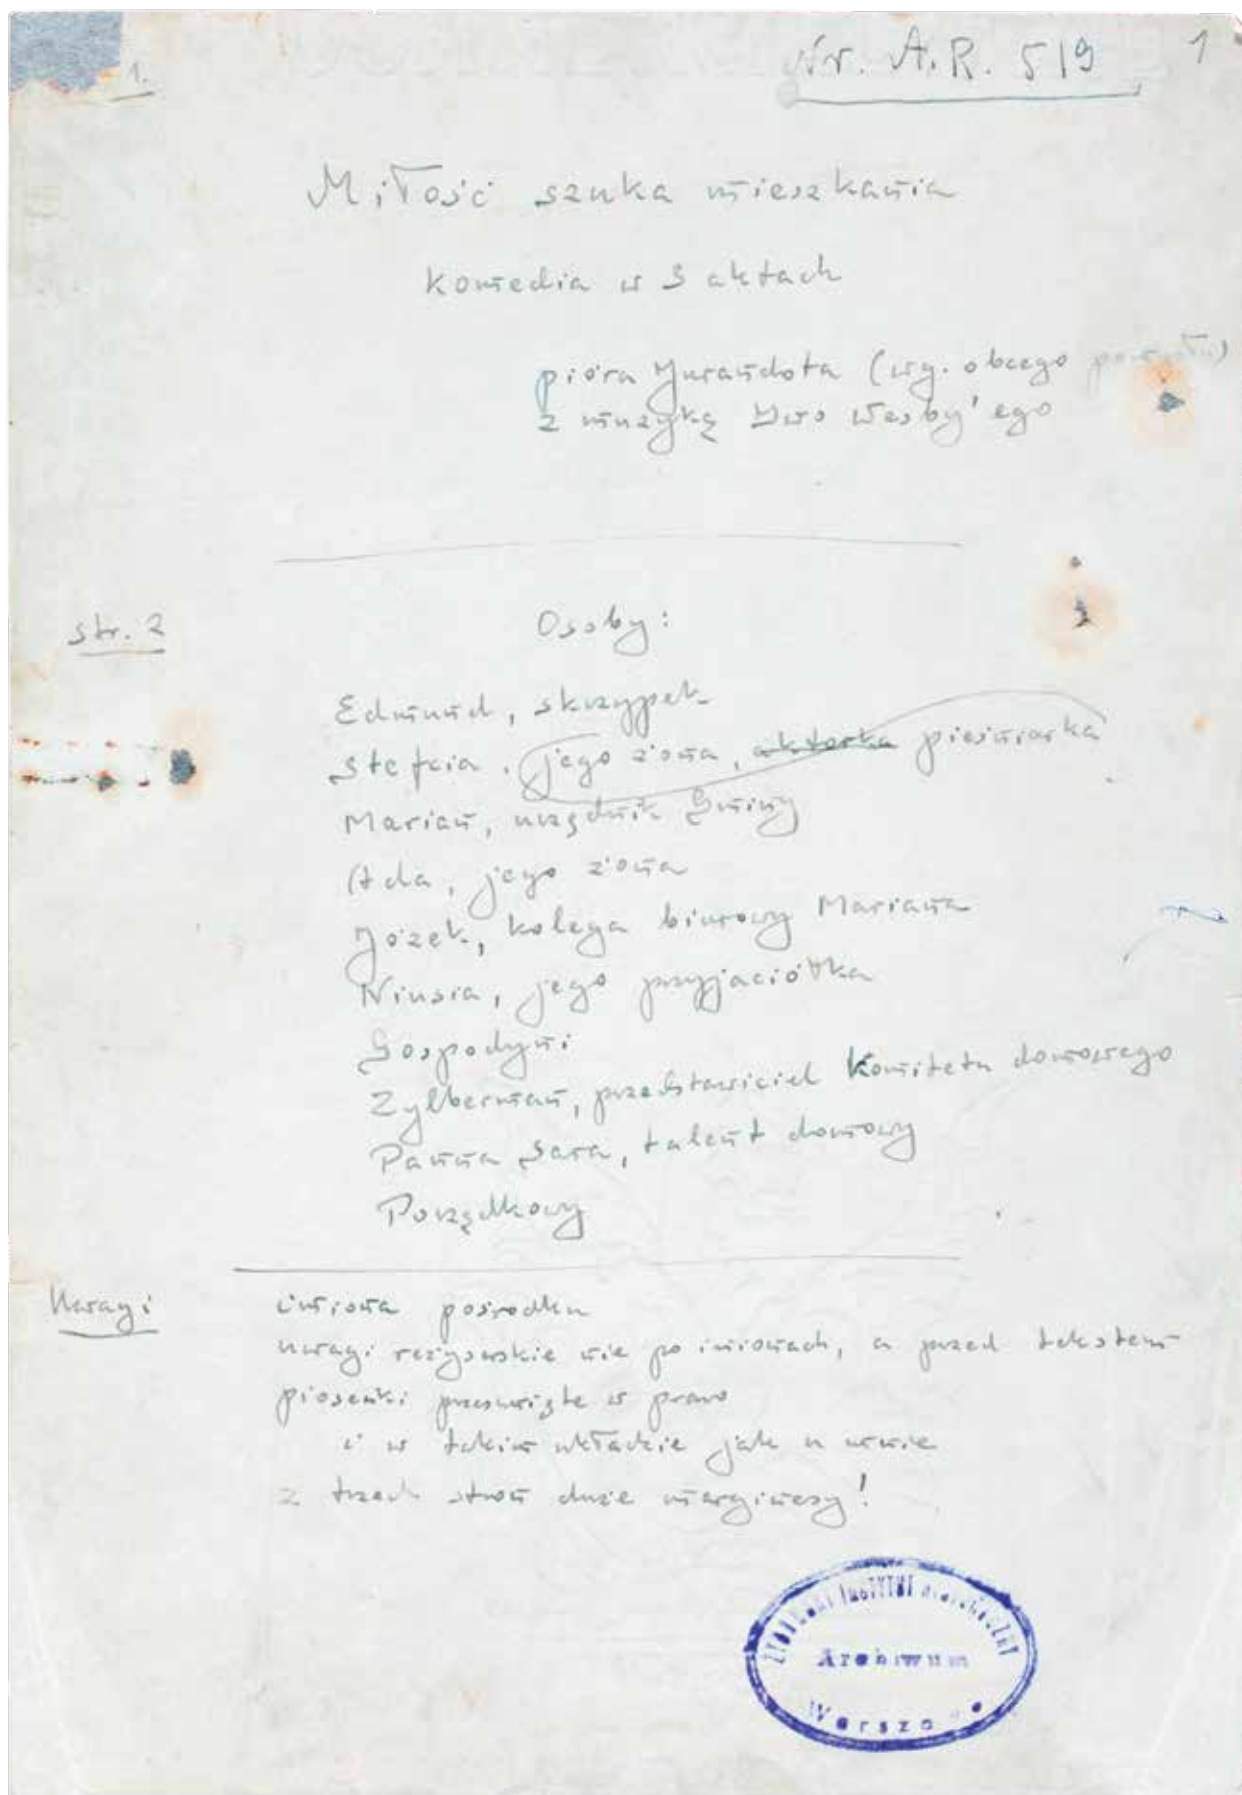 Nr. A.R. 519
1
1.
Miłość szuka mieszkania
Komedia w 3 aktach
pióra Jurandota (wg. obcego pomysłu)
z muzyką Iwo Wesby'ego
str. 2
Osoby:
Edmund, skrzypek
Stefcia, jego żona, aktorka pieśniarka
Marian, urzędnik Gminy
Ada, jego żona
Józek, kolega biurowy Mariana
Niusia, jego przyjaciółka
Gospodyni
Zylberman, przedstawiciel Komitetu domowego
Panna Sara, talent domowy
Porządkowy
Uwagi
imiona pośrodku
uwagi reżyserskie nie po imionach, a przed tekstem
piosenki przesunięte w prawo
i w takim układzie jak u mnie
z trzech stron duże marginesy!
ŻYDOWSKI INSTYTUT HISTORYCZNY
Archiwum
Warszawa